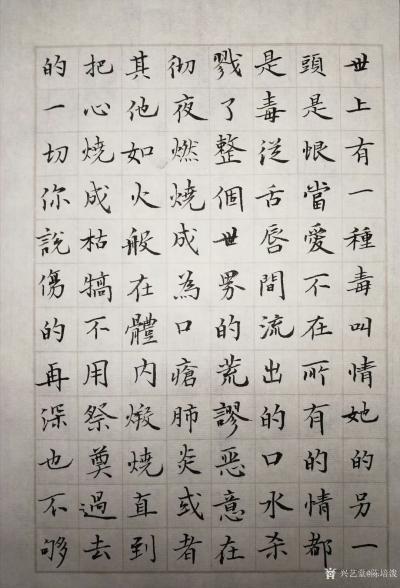 世上有一種毒叫情她的另一
頭是恨當愛不在所有的情都
是毒從舌唇間流出的口水杀
戮了整個世界的荒謬恶意在
彻夜燃燒成為口瘡肺炎或者
其他如火般在體内煅燒直到
把心燒成枯犒不用祭奠過去
的一切你說傷的再深也不够
兴艺堂@陈培泼